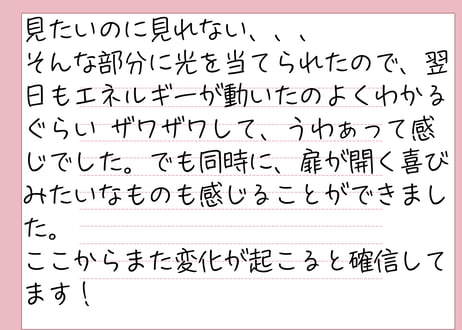 見たいのに見れない、、、
そんな部分に光を当てられたので、翌
日もエネルギーが動いたのよくわかる
ぐらい ザワザワして、うわぁって感
じでした。でも同時に、扉が開く喜び
みたいなものも感じることができまし
た。
ここからまた変化が起こると確信して
ます！